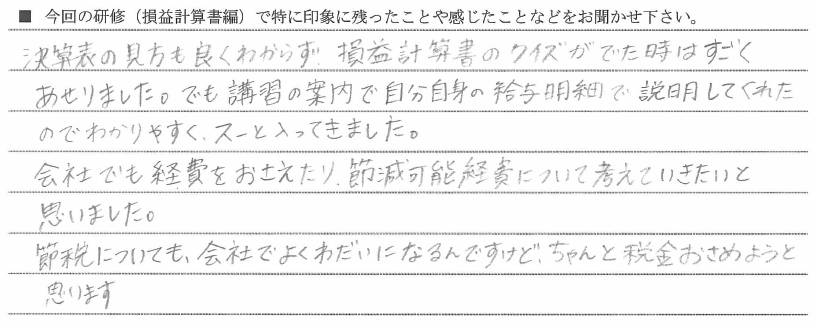 ■ 今回の研修（損益計算書編）で特に印象に残ったことや感じたことなどをお聞かせ下さい。
決算表の見方も良くわからず、損益計算書のクイズがでた時はすごく
あせりました。でも講習の案内で自分自身の給与明細で説明してくれた
のでわかりやすく、スーと入ってきました。
会社でも経費をおさえたり、節減可能経費について考えていきたいと
思いました。
節税についても、会社でよくわだいになるんですけど、ちゃんと税金おさめようと
思います